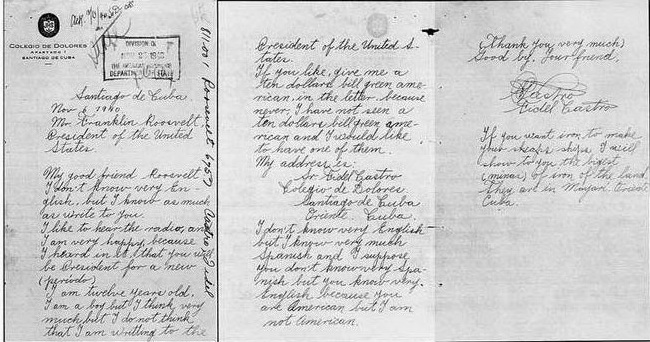 COLEGIO DE DOLORES
APARTADO 1
SANTIAGO DE CUBA
DIVISION OF
THE AMERICAN REPUBLICS
DEPARTMENT OF STATE
Santiago de Cuba.
Nov 6 1940.
Mr. Franklin Roosvelt,
President of the United
States.
My good friend Roosvelt
I don't know very En-
glish, but I know as much
as write to you.
I like to hear the radio, and
I am very happy, because
I heard in it, that you will
be President for a new
(periodo)
I am twelve years old.
I am a boy but I think very
much but I do not think
that I am writting to the
811.001 Roosevelt 6757
Castro, Fidel
President of the United S-
tates.
If you like, give me a
ten dollars bill green ame-
rican, in the letter, because
never, I have not seen a
ten dollars bill green ame-
rican and I would like
to have one of them.
My address is:
Sr. Fidel Castro
Colegio de Dolores.
Santiago de Cuba
Oriente. Cuba.
I don't know very English
but I know very much
Spanish and I suppose
you don't know very Spa-
nish but you know very
English because you
are American but I am
not American.
(Thank you very much)
Good by. Your friend,
Castro
Fidel Castro
If you want iron to make
your sheaps ships I will
show to you the bigest
(minas) of iron of the land.
They are in Mayari. Oriente
Cuba.